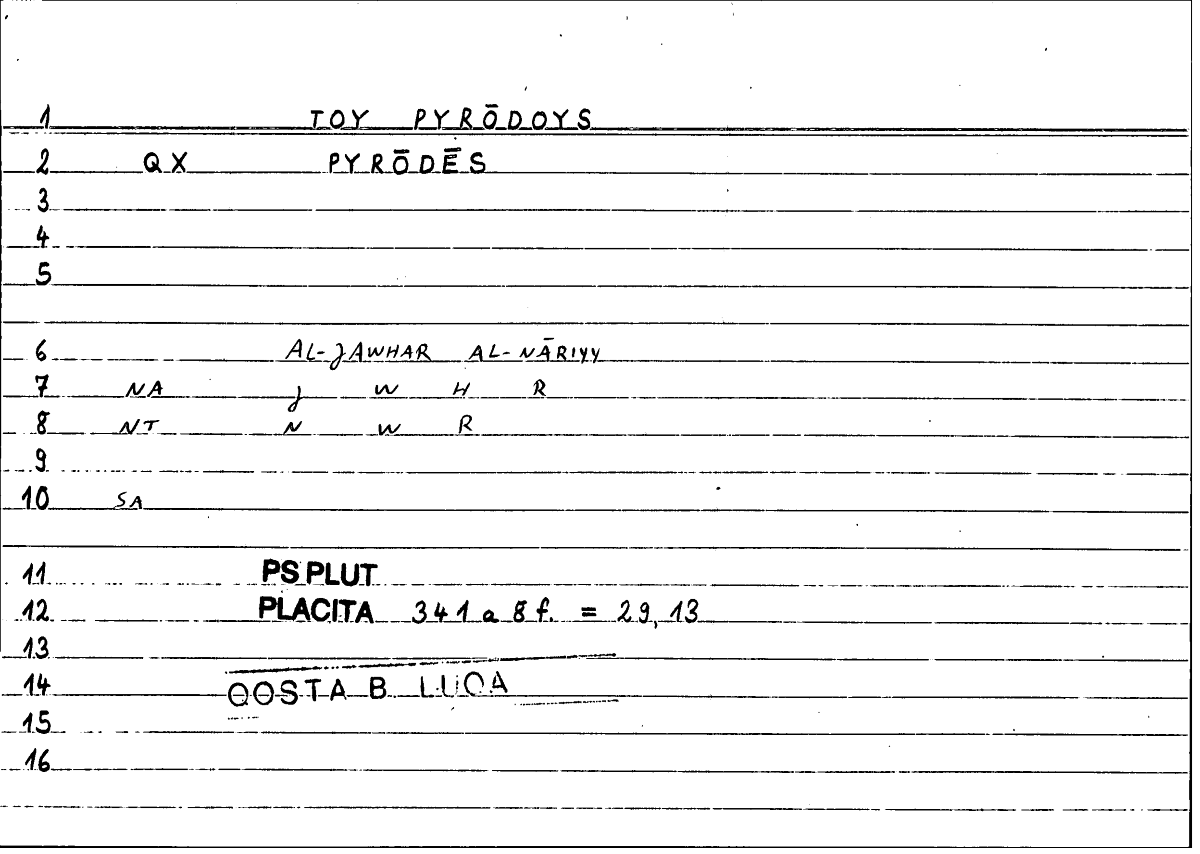 1 TOY PYRŌDOYS
2 QX PYRŌDĒS
3
4
5
6 AL-JAWHAR AL-NĀRIYY
7 NA J W H R
8 NT N W R
9
10 SA
11 PS PLUT
12 PLACITA 341 a 8 f. = 29, 13
13
14 QOSTA B LUQA
15
16